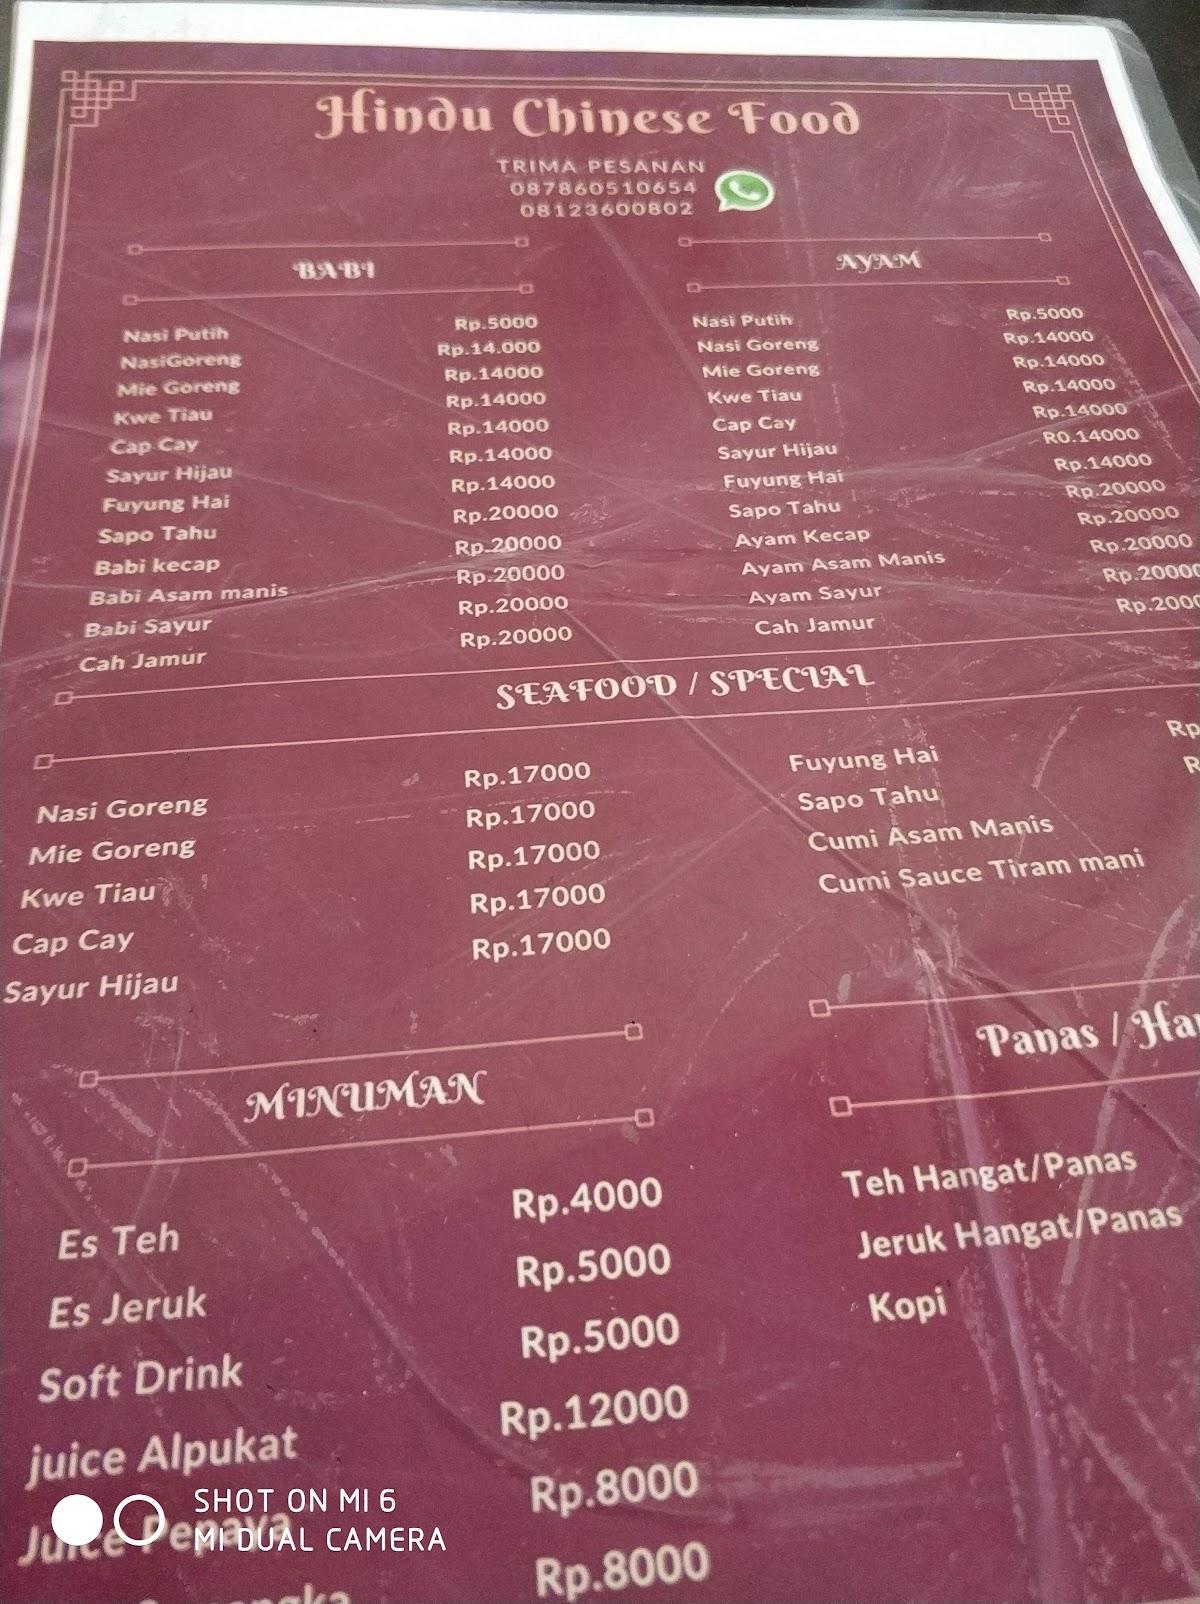 Hindu Chinese Food
TRIMA PESANAN
087860510654
08123600802
BABI
Nasi Putih Rp.5000
NasiGoreng Rp.14.000
Mie Goreng Rp.14000
Kwe Tiau Rp.14000
Cap Cay Rp.14000
Sayur Hijau Rp.14000
Fuyung Hai Rp.14000
Sapo Tahu Rp.20000
Babi kecap Rp.20000
Babi Asam manis Rp.20000
Babi Sayur Rp.20000
Cah Jamur Rp.20000
AYAM
Nasi Putih Rp.5000
Nasi Goreng Rp.14000
Mie Goreng Rp.14000
Kwe Tiau Rp.14000
Cap Cay Rp.14000
Sayur Hijau R0.14000
Fuyung Hai Rp.14000
Sapo Tahu Rp.20000
Ayam Kecap Rp.20000
Ayam Asam Manis Rp.20000
Ayam Sayur Rp.20000
Cah Jamur Rp.200
SEAFOOD / SPECIAL
Nasi Goreng Rp.17000
Mie Goreng Rp.17000
Kwe Tiau Rp.17000
Cap Cay Rp.17000
Sayur Hijau Rp.17000
Fuyung Hai Rp
Sapo Tahu R
Cumi Asam Manis
Cumi Sauce Tiram mani
MINUMAN
Es Teh Rp.4000
Es Jeruk Rp.5000
Soft Drink Rp.5000
juice Alpukat Rp.12000
Juice Pepaya Rp.8000
Rp.8000
Panas / Ha
Teh Hangat/Panas
Jeruk Hangat/Panas
Kopi
SHOT ON MI 6
MI DUAL CAMERA